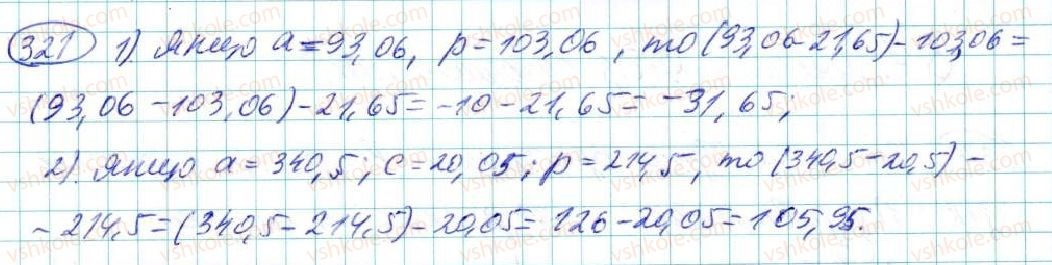 321 1) якщо a=93,06, p=103,06, то (93,06-21,65)-103,06=
(93,06-103,06)-21,65=-10-21,65=-31,65;
2) якщо a=340,5; c=20,05; p=214,5, то (340,5-20,5)-
-214,5=(340,5-214,5)-20,05=126-20,05=105,95.